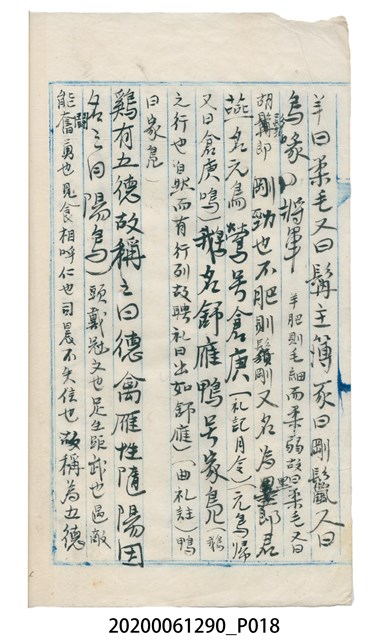 羊曰柔毛又曰髯主簿豕曰剛鬣又曰
烏喙將軍 羊肥則毛細而柔弱故曰柔毛又曰
胡髯郎 剛勁也豕肥則鬣剛 又名為黑郎君
燕名元鳥鶯号倉庚（礼記月令）元鳥歸
又曰倉庚鳴）鵝名舒雁鴨号家鳧 鵝
之行也自然而有行列故聘礼曰出如舒雁（曲礼註 鴨
曰家鳧）
鷄有五德故稱之曰德禽雁性隨陽因
名之曰陽鳥）頭戴冠文也足生距武也遇敵
能奮鬪勇也見食相呼仁也司晨不失信也 故稱為五德
20200061290_P018